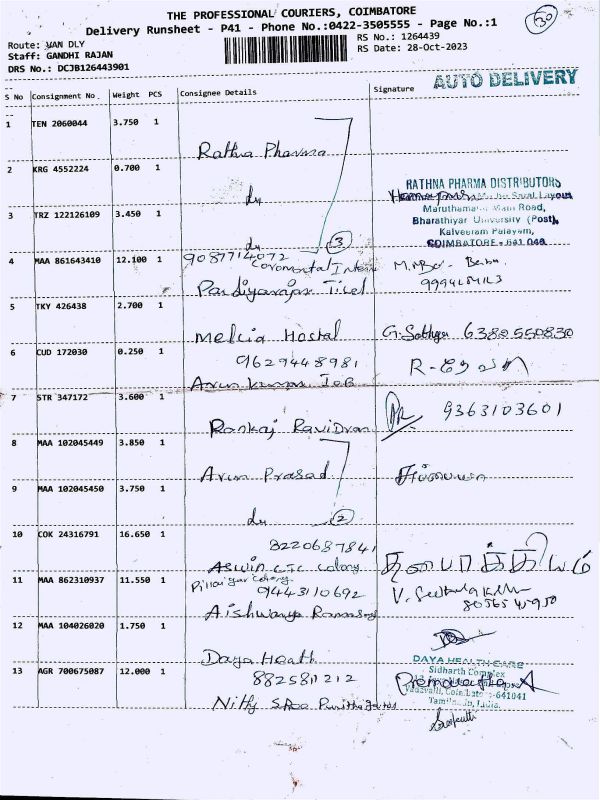 THE PROFESSIONAL COURIERS, COIMBATORE
30
Delivery Runsheet - P41 - Phone No.:0422-3505555 - Page No.:1
Route: VAN DLY
RS No.: 1264439
Staff: GANDHI RAJAN
RS Date: 28-Oct-2023
DRS No.: DCJB126443901
AUTO DELIVERY
S No Consignment No Weight PCS Consignee Details Signature
1 TEN 2060044 3.750 1
Rathna Pharma
2 KRG 4552224 0.700 1
du
RATHNA PHARMA DISTRIBUTORS
Layout
3 TRZ 122126109 3.450 1
Maruthamalai Main Road,
Bharathiyar University (Post),
Kalveeram Palayam,
du 3
COIMBATORE - 641 046
4 MAA 861643410 12.100 1
9087714072
Coromental
Pandiyarajan
5 TKY 426438 2.700 1
Melcia Hostal
G. Sathya 6382550830
6 CUD 172030 0.250 1
9629448981
Arun Kumar IOB
7 STR 347172 3.600 1
9363103601
Pankaj Ravidran
8 MAA 102045449 3.850 1
Arun Prasad
9 MAA 102045450 3.750 1
du 2
10 COK 24316791 16.650 1
8220687841
Aswin CTC Colony
11 MAA 862310937 11.550 1
Pillaiyar Colony
9443110692
Aishwarya
12 MAA 104026020 1.750 1
Daya Heath
DAYA HEALTH CARE
Sidharth Complex
13 AGR 700675087 12.000 1
8825811212
Premalatha A
Vadavalli, Coimbatore -641041
Tamil Nadu, India.
Nithy